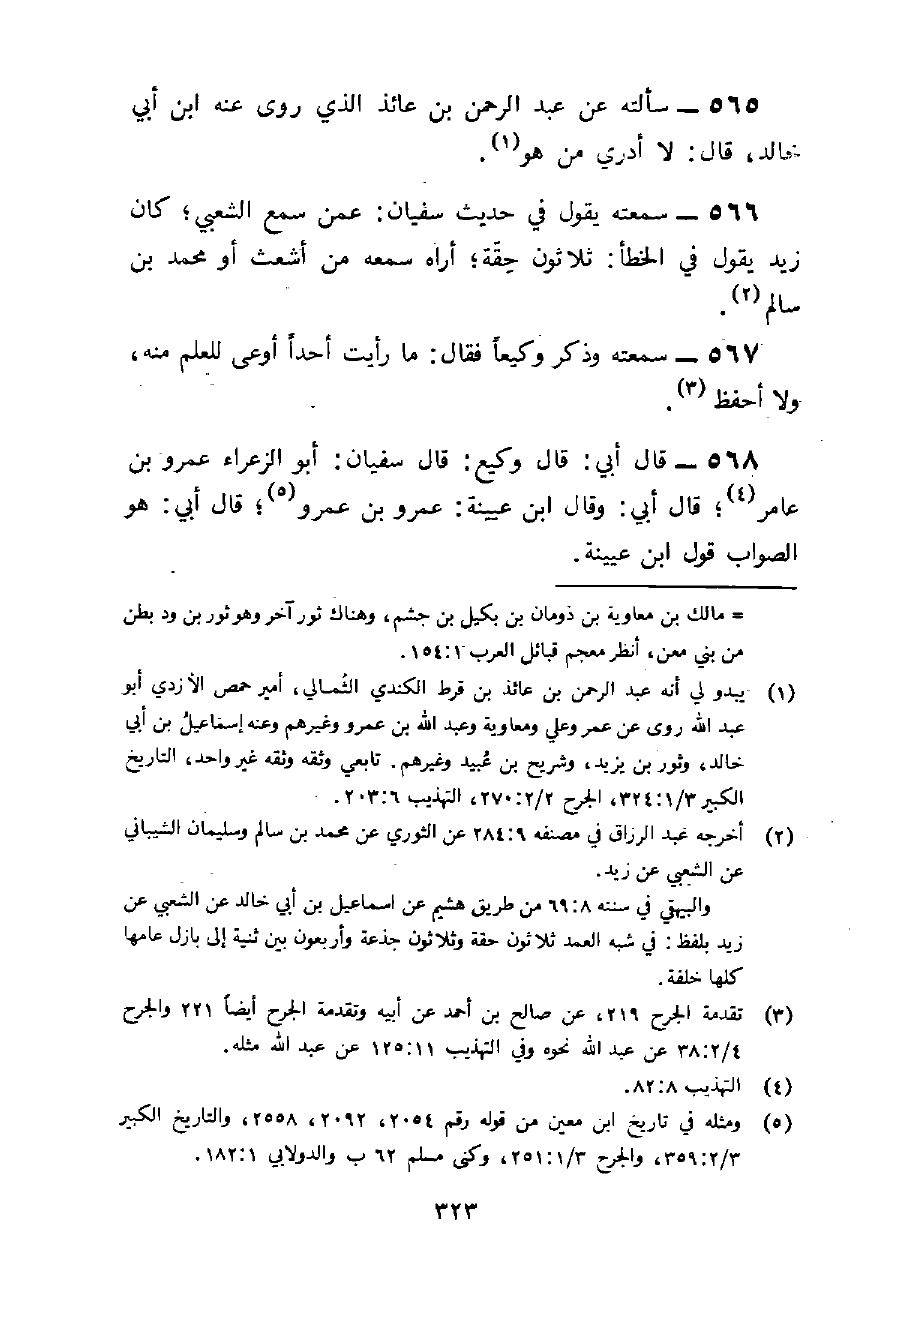 ٥٦٥ ــ سألته عن عبد الرحمن بن عائذ الذي روى عنه ابن أبي
خالد، قال: لا أدري من هو(١).
٥٦٦ ــ سمعته يقول في حديث سفيان: عمن سمع الشعبي؛ كان
زيد يقول في الخطأ: ثلاثون حِقّة؛ أراه سمعه من أشعث أو محمد بن
سالم(٢).
٥٦٧ ــ سمعته وذكر وكيعاً فقال: ما رأيت أحداً أوعى للعلم منه،
ولا أحفظ(٣).
٥٦٨ ــ قال أبي: قال وكيع: قال سفيان: أبو الزعراء عمرو بن
عامر(٤)؛ قال أبي: وقال ابن عيينة: عمرو بن عمرو(٥)؛ قال أبي: هو
الصواب قول ابن عيينة.
= مالك بن معاوية بن ذومان بن بكيل بن جشم، وهناك ثور آخر وهو ثور بن ود بطن
من بني معن، أنظر معجم قبائل العرب ١:١٥٤.
(١) يبدو لي أنه عبد الرحمن بن عائذ بن قرط الكندي الثُمالي، أمير حمص الأزدي أبو
عبد الله روى عن عمر وعلي ومعاوية وعبد الله بن عمرو وغيرهم وعنه إسماعيلُ بن أبي
خالد، وثور بن يزيد، وشريح بن عُبيد وغيرهم. تابعي وثقه وثقه غير واحد، التاريخ
الكبير ٣/١:٣٢٤، الجرح ٢/٢:٢٧٠، التهذيب ٦:٢٠٣.
(٢) أخرجه عبد الرزاق في مصنفه ٩:٢٨٤ عن الثوري عن محمد بن سالم وسليمان الشيباني
عن الشعبي عن زيد.
والبيهقي في سننه ٨:٦٩ من طريق هشيم عن اسماعيل بن أبي خالد عن الشعبي عن
زيد بلفظ: في شبه العمد ثلاثون حقة وثلاثون جذعة وأربعون بين ثنية إلى بازل عامها
كلها خلفة.
(٣) تقدمة الجرح ٢١٩، عن صالح بن أحمد عن أبيه وتقدمة الجرح أيضاً ٢٢١ والجرح
٤/٢:٣٨ عن عبد الله نحوه وفي التهذيب ١١:١٢٥ عن عبد الله مثله.
(٤) التهذيب ٨:٨٢.
(٥) ومثله في تاريخ ابن معين من قوله رقم ٢٠٥٤، ٢٠٩٢، ٢٥٥٨، والتاريخ الكبير
٣/٢:٣٥٩، والجرح ٣/١:٢٥١، وكنى مسلم ٦٢ ب والدولابي ١:١٨٢.
٣٢٣